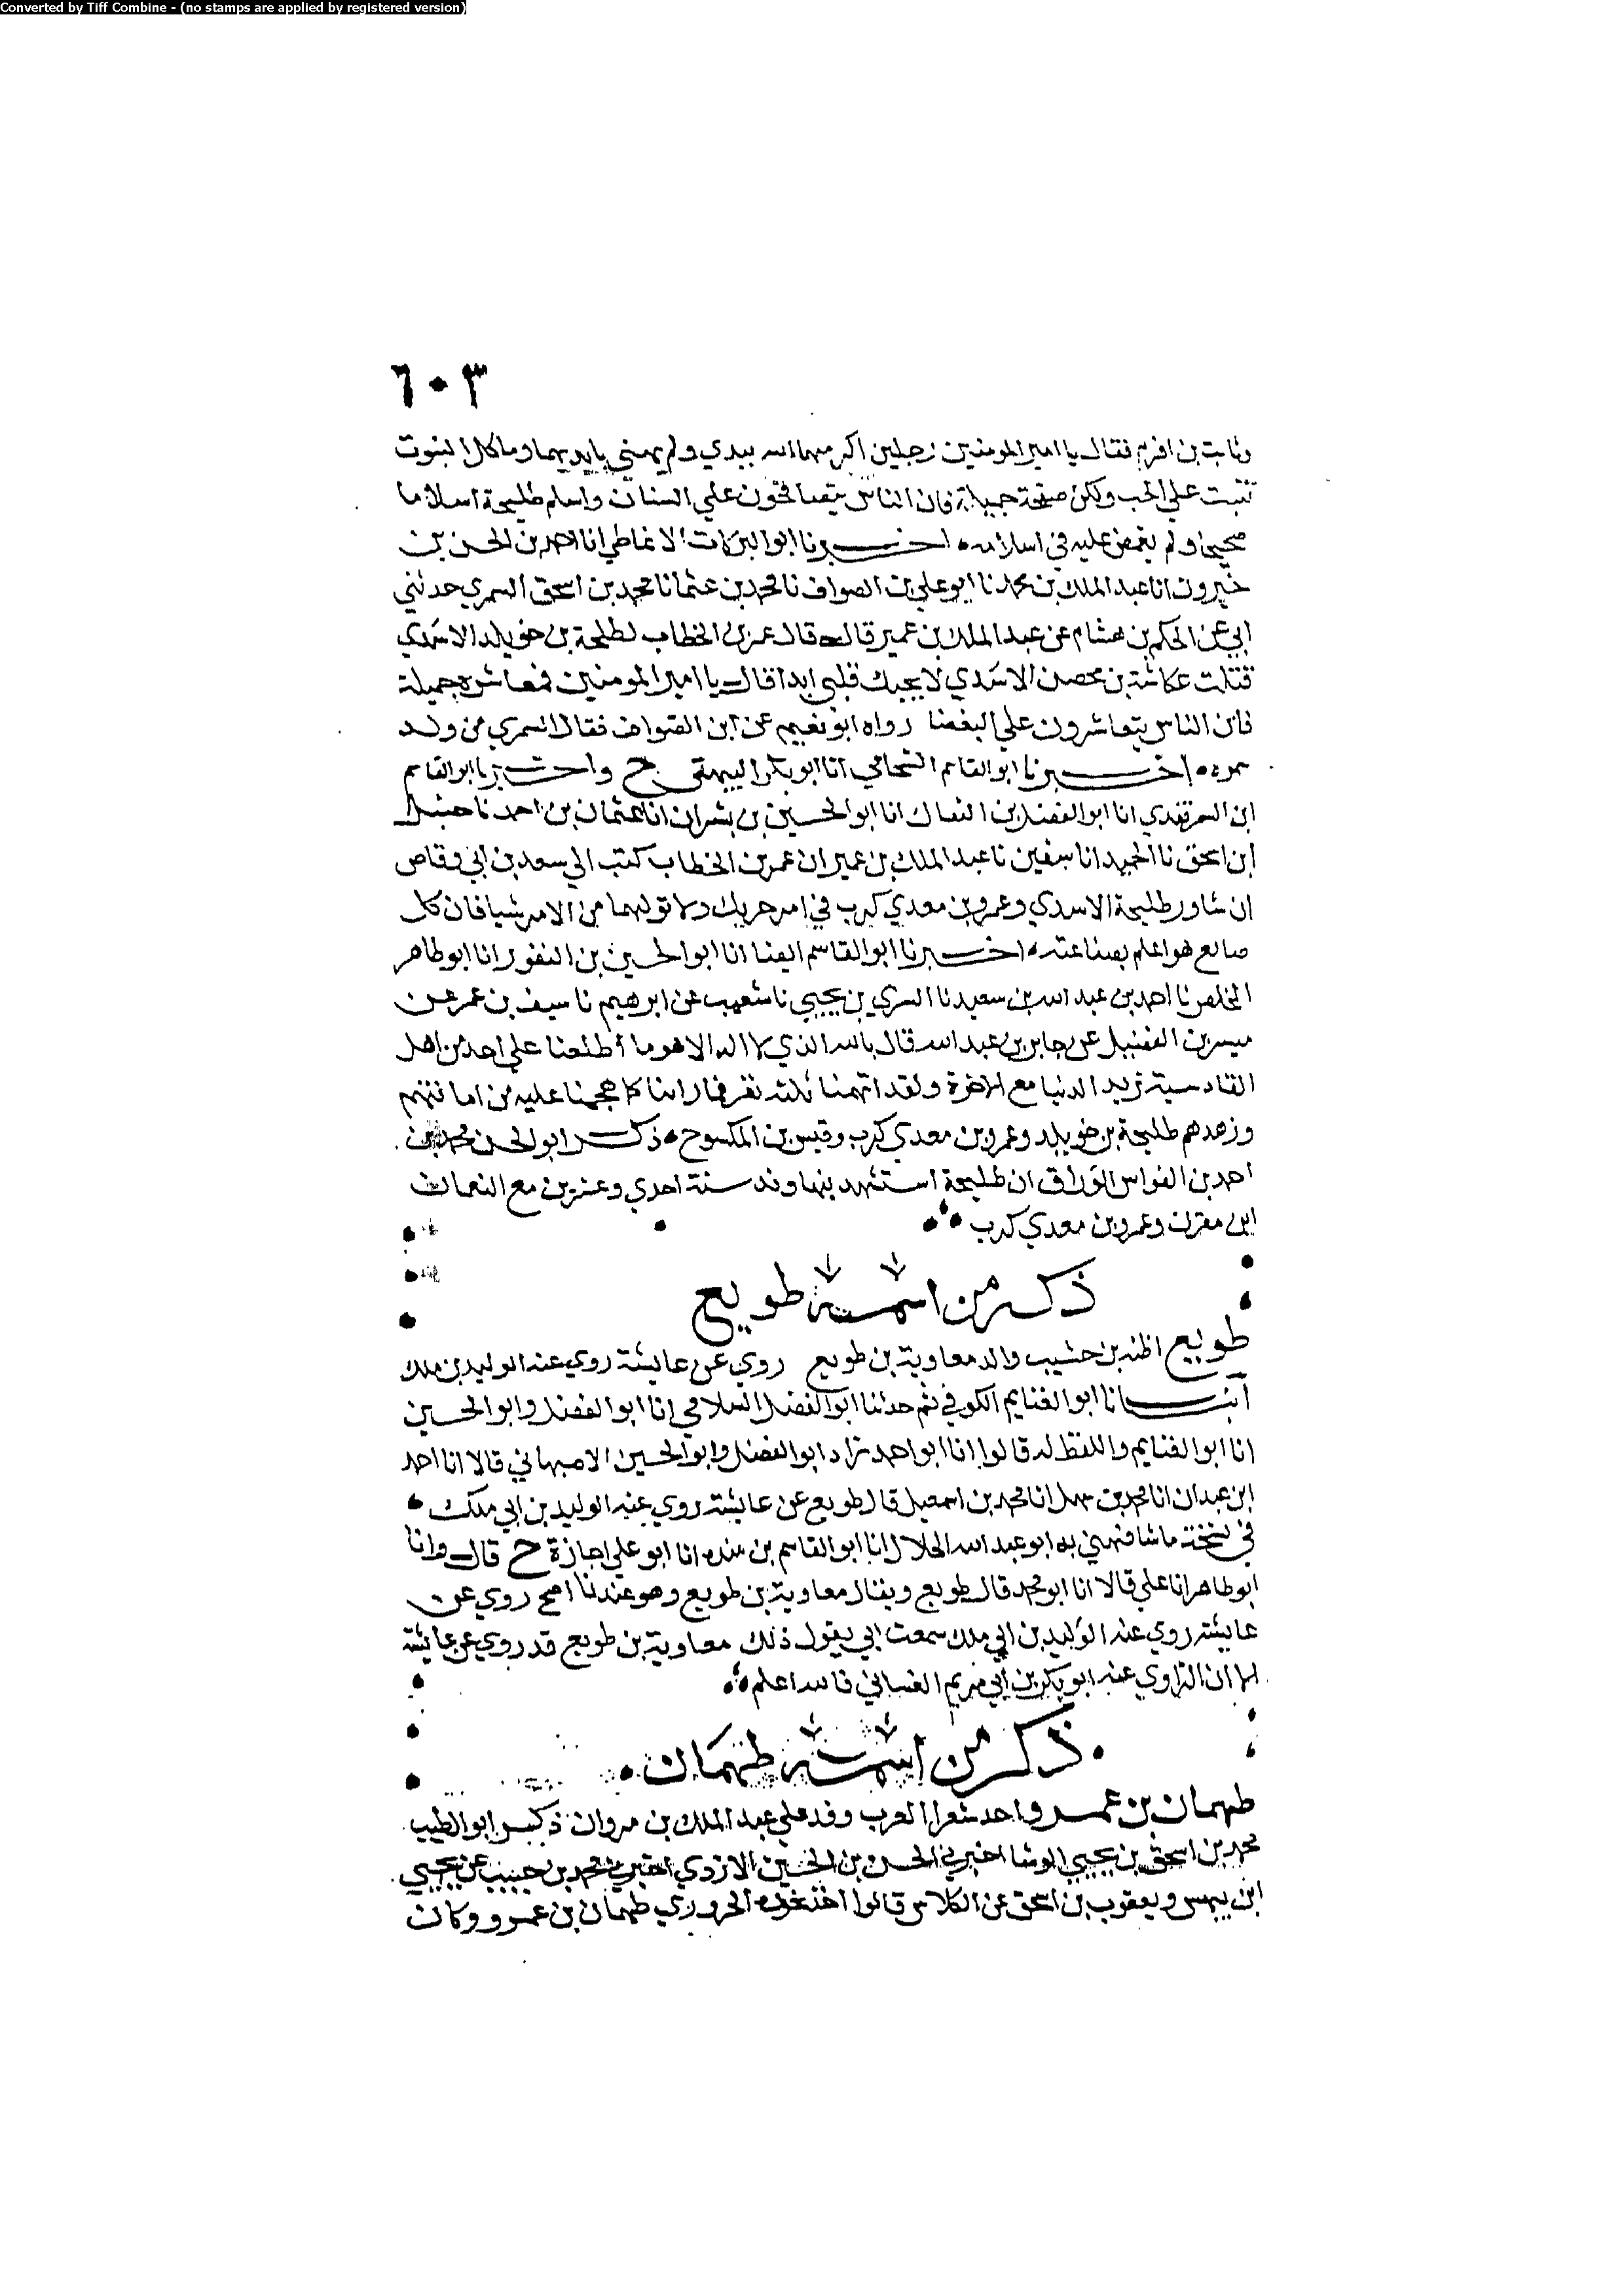 Converted by Tiff Combine - (no stamps are applied by registered version)
٦٠٣
وثابت بن اقرم فقال يا امير المومنين رجلين اكرمهما الله بيدي ولم يهني بايديهما وما كل البيوت
تبنت على الحب ولكن صفحة جميلة فان الناس يتصافحون على السنان واسلم طليحة اسلاما
صحيحا ولم يغمض عليه في اسلامه اخبرنا ابو البركات الانماطي انا احمد بن الحسن بن
خيرون انا عبد الملك بن محمد نا ابو علي بن الصواف نا محمد بن عثمان نا محمد بن اسحق السمري حدثني
ابي عن الحكم بن هشام عن عبد الملك بن عمير قال قال عمر بن الخطاب لطلحة بن خويلد الاسدي
قتلت عكاشة بن محصن الاسدي لا يحبك قلبي ابدا قال يا امير المومنين فمعاشرة جميلة
فان الناس يتعاشرون على البغضا رواه ابو نعيم عن ابن الصواف فقال السمري من ولد
سمرة اخبرنا ابو القاسم الشحامي انا ابو بكر البيهقي ح واخبرنا ابو القاسم
ابن السمرقندي انا ابو الفضل بن البقال انا ابو الحسين بن بشران انا عثمان بن احمد نا حنبل
ابن اسحق نا الحميدي نا سفين نا عبد الملك بن عمير ان عمر بن الخطاب كتب الي سعد بن ابي وقاص
ان شاور طليحة الاسدي وعمرو بن معدي كرب في امر حربك ولا تولهما من الامر شيا فان كل
صانع هو اعلم بصناعته اخبرنا ابو القاسم ايضا انا ابو الحسين بن النقور انا ابو طاهر
المخلص نا احمد بن عبد الله بن سعيد نا السري بن يحيى نا شعيب عن ابرهيم نا سيف بن عمر عن
ميسر بن الفضيل عن جابر بن عبد الله قال بالله الذي لا اله الا هو ما اطلعنا على احد من اهل
القادسية تريد الدنيا مع الاخرة ولقد اتهمنا ثلثه نفر فما راينا كما هجمنا عليه من امانتهم
وزهدهم طليحة بن خويلد وعمرو بن معدي كرب وقيس بن المكشوح ذكر ابو الحسن محمد بن
احمد بن القواس الوراق ان طليحة استشهد بنهاوند سنة احدي وعشرين مع النعمان
ابن مقرن وعمرو بن معدي كرب
ذكر من اسمه طويع
طويع اظنه بن حشيب والد معاوية بن طويع روي عن عايشة روي عنه الوليد بن ملك
انبانا ابو الغنايم الكوفي ثم حدثنا ابو الفضل السلامي انا ابو الفضل وابو الحسين
انا ابو الغنايم واللفظ له قالوا انا ابو احمد زاد ابو الفضل وابو الحسين الاصبهاني قالا انا احمد
ابن عبدان انا محمد بن سهل انا محمد بن اسمعيل قال طويع عن عايشة روي عنه الوليد بن ابي ملك
في نسخة ما شافهني به ابو عبد الله الخلال انا ابو القاسم بن منده انا ابو علي اجازة ح قال وانا
ابو طاهر انا علي قالا انا ابو محمد قال طويع ويقال معاوية بن طويع وهو عندنا اصح روي عن
عايشة روي عنه الوليد بن ابي ملك سمعت ابي يقول ذلك معاوية بن طويع قد روي عن عايشة
الا ان الراوي عنه ابو بكر بن ابي مريم الغساني فالله اعلم
ذكر من اسمه طهمان
طهمان بن عمرو احد شعرا العرب وفد على عبد الملك بن مروان ذكر ابو الطيب
محمد بن اسحق بن يحيى الوشا اخبرني الحسن بن الحسين الازدي اخبرني محمد بن حبيب عن يحيى
ابن بيهس ويعقوب بن اسحق عن الكلابي قالوا اخذ نجدة الحروري طهمان بن عمرو وكان